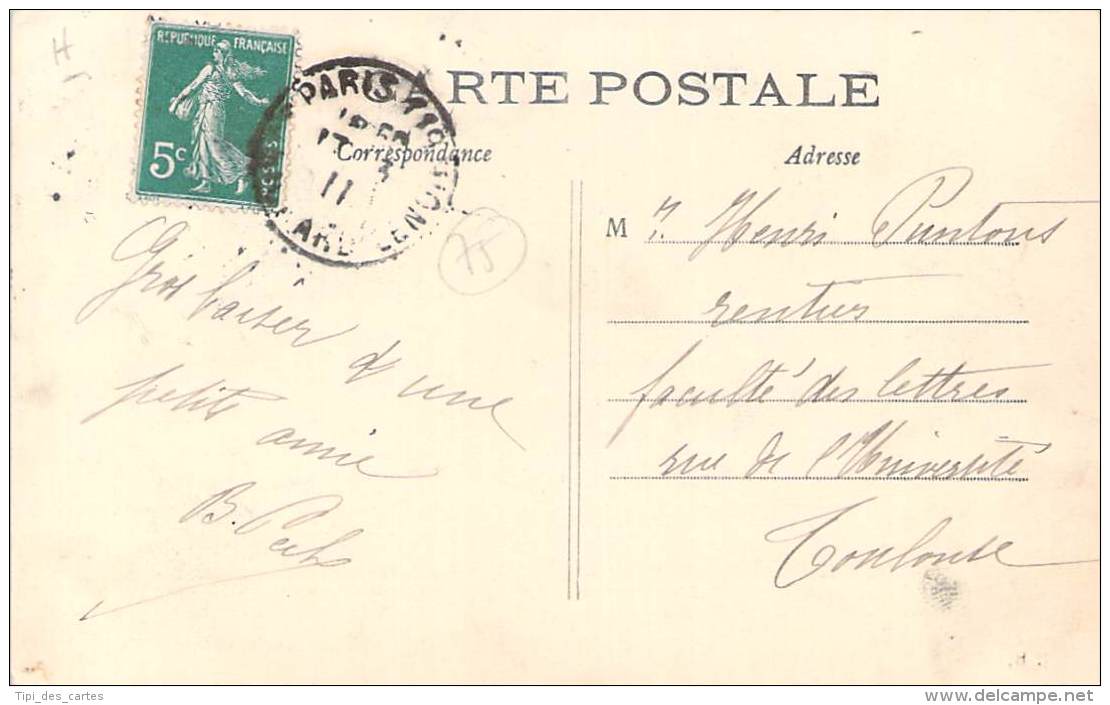 H
REPUBLIQUE FRANÇAISE
5c
PARIS 110
17 3
11
CARTE POSTALE
Correspondance
Adresse
75
Gros baiser d'une
petite amie
B.
M J. Henri Puntous
rentier
faculté des lettres
rue de l'Université
Toulouse
Tipi_des_cartes
www.delcampe.net